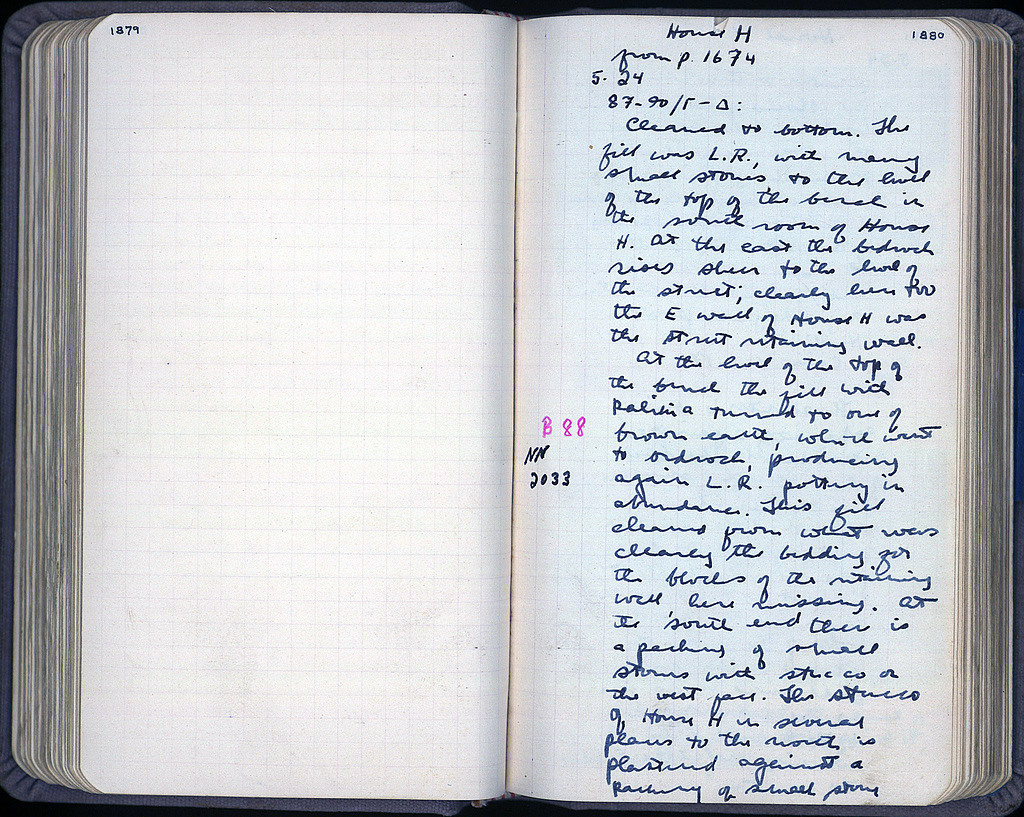 1879
1880
House H
from p. 1674
5. 24
87-90/Γ-Δ:
Cleaned to bottom. The
fill was L.R., with many
small stones to the level
of the top of the bench in
the south room of House
H. At the east the bedrock
rises sheer to the level of
the street; clearly here too
the E wall of House H was
the street retaining wall.
At the level of the top of
the bench the fill with
turned to one of
B 88
brown earth, which went
NN
to bedrock, producing
2033
again L.R. pottery in
abundance. This fill
cleaned from what was
clearly the bedding for
the blocks of the retaining
wall, here missing. At
the south end there is
a packing of small
stones with stucco on
the west face. The stucco
of House H in several
places to the north is
plastered against a
packing of small stone